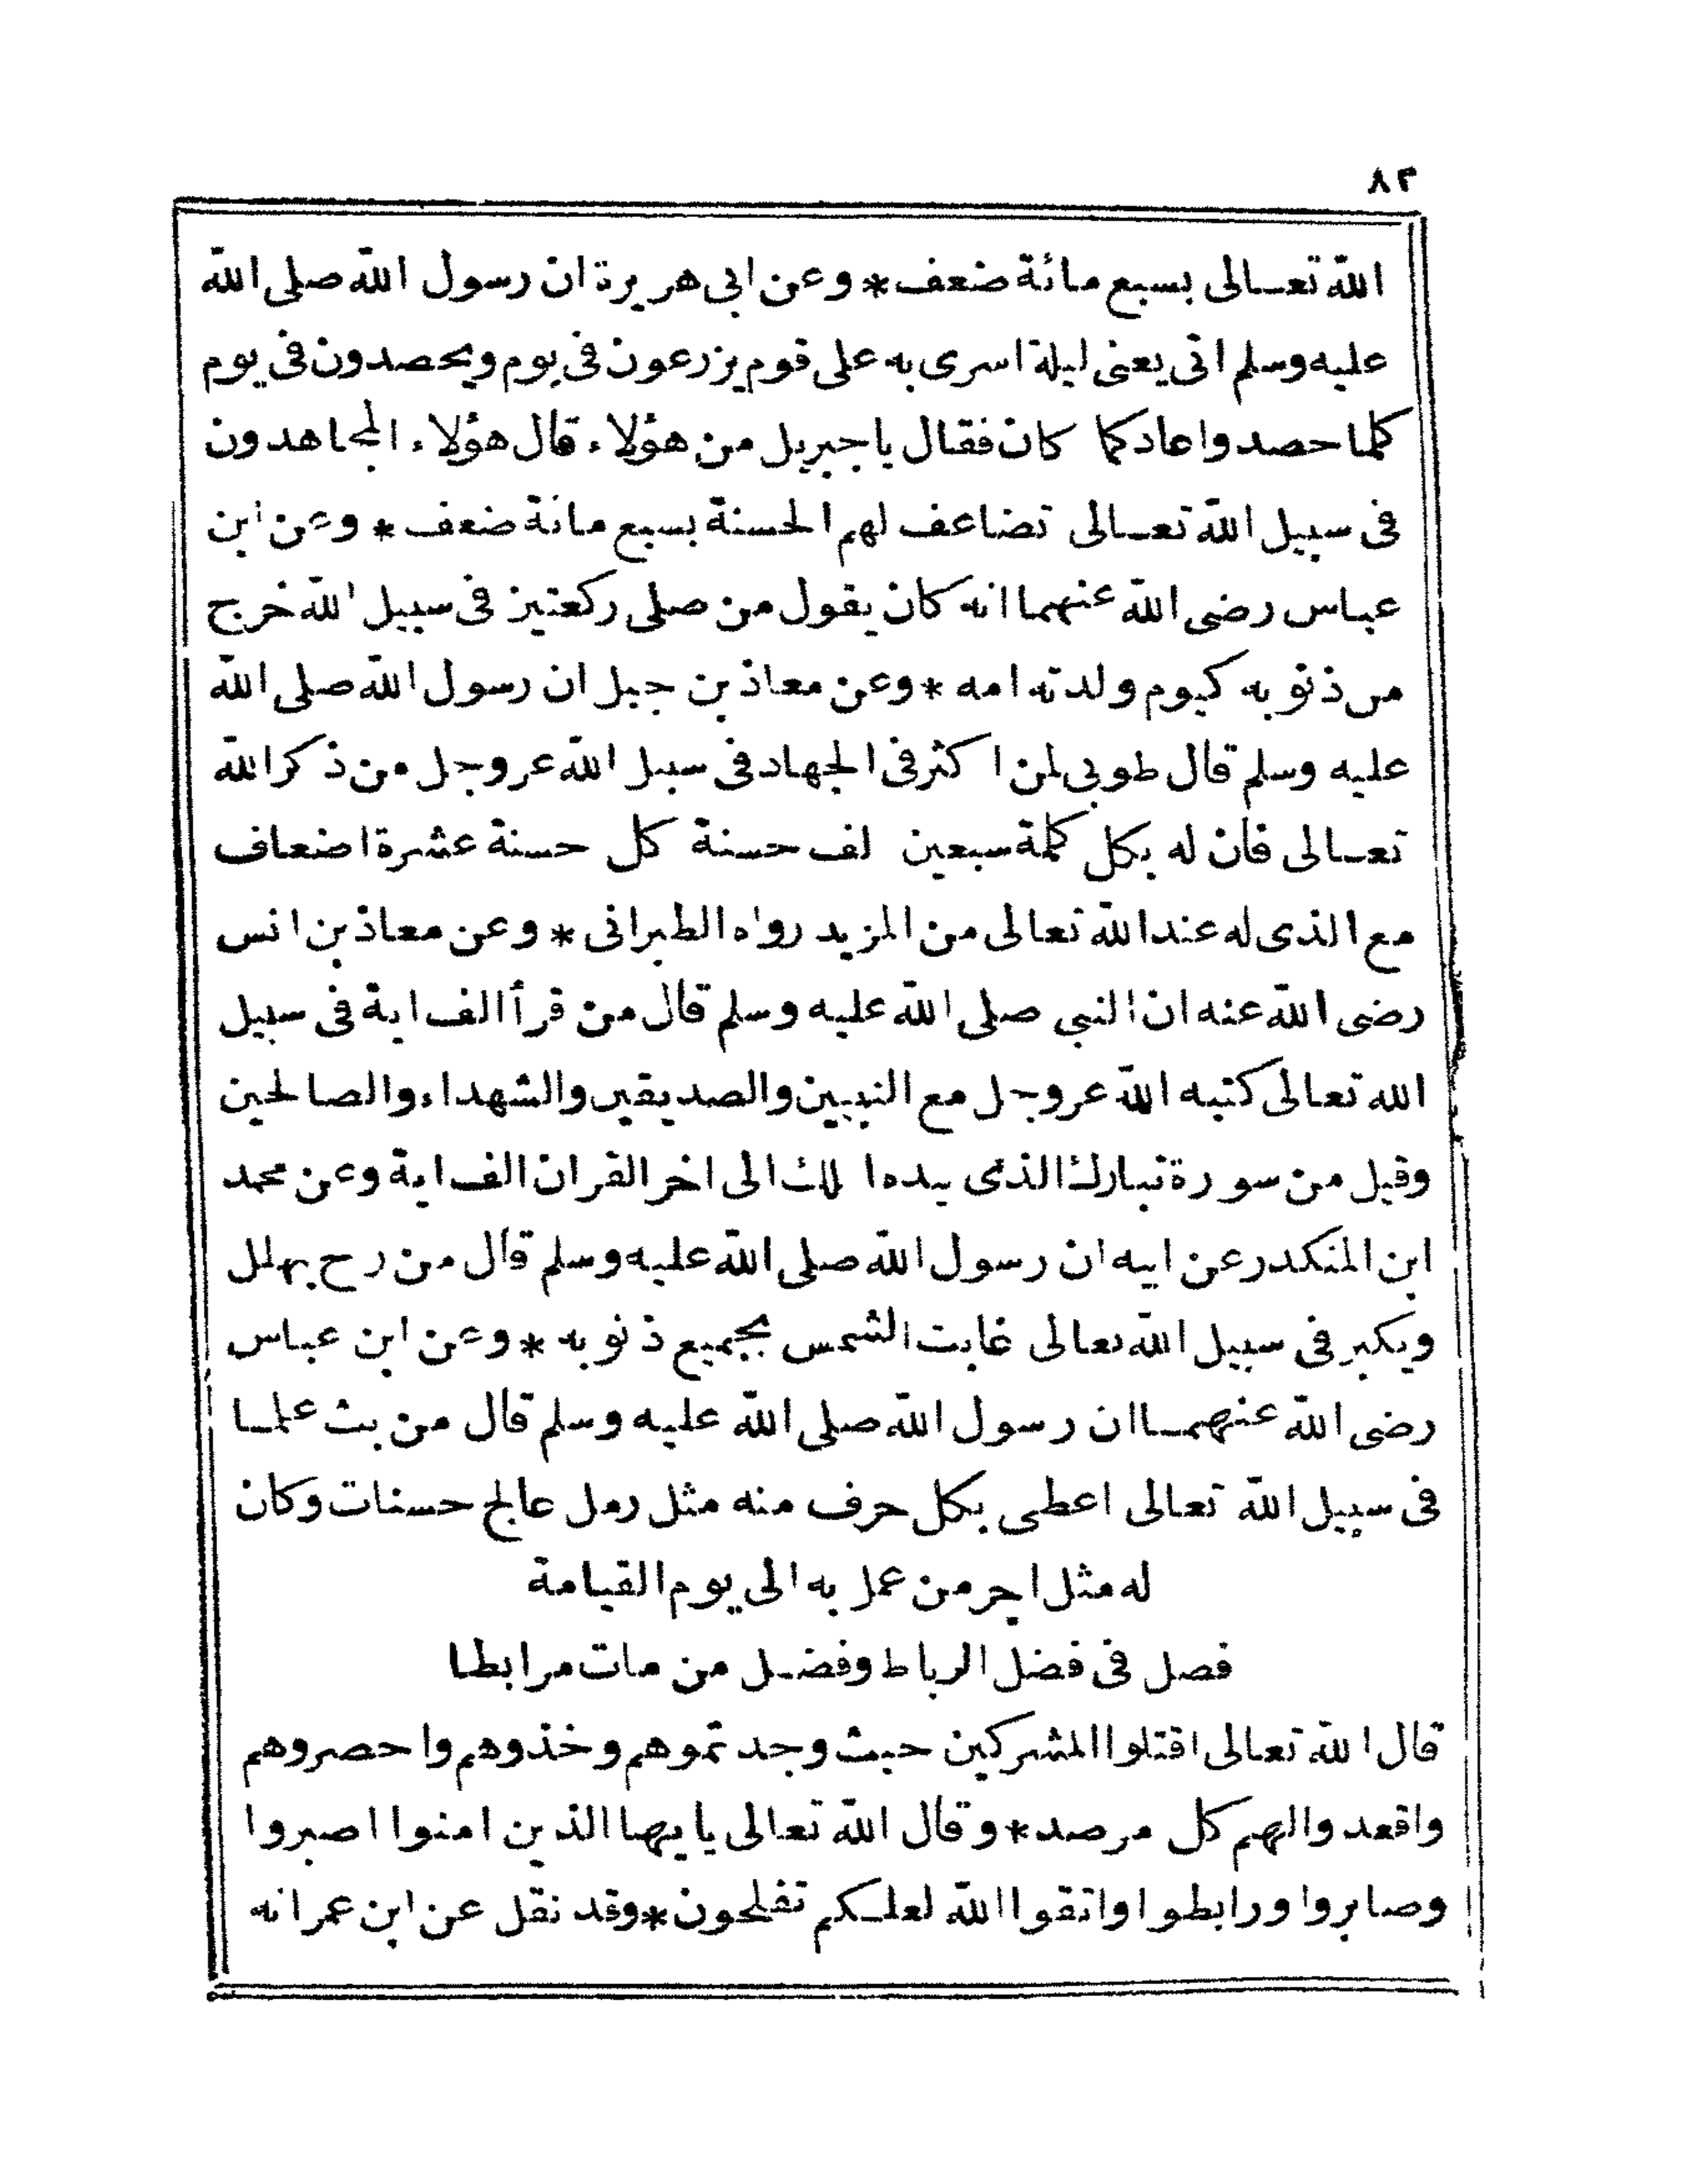 ٨٣
الله تعالى بسبع مائة ضعف * وعن ابى هريرة ان رسول الله صلى الله
عليه وسلم اتى يعنى ليلة اسرى به على قوم يزرعون فى يوم ويحصدون فى يوم
كلما حصدوا عاد كما كان فقال ياجبريل من هؤلاء قال هؤلاء المجاهدون
فى سبيل الله تعالى تضاعف لهم الحسنة بسبع مائة ضعف * وعن ابن
عباس رضى الله عنهما انه كان يقول من صلى ركعتين فى سبيل الله خرج
من ذنوبه كيوم ولدته امه * وعن معاذ بن جبل ان رسول الله صلى الله
عليه وسلم قال طوبى لمن اكثر فى الجهاد فى سبيل الله عز وجل من ذكر الله
تعالى فان له بكل كلمة سبعين الف حسنة كل حسنة عشرة اضعاف
مع الذى له عند الله تعالى من المزيد رواه الطبرانى * وعن معاذ بن انس
رضى الله عنه ان النبى صلى الله عليه وسلم قال من قرأ الف اية فى سبيل
الله تعالى كتبه الله عز وجل مع النبيين والصديقين والشهداء والصالحين
وقيل من سورة تبارك الذى بيده الملك الى اخر القران الف اية وعن محمد
ابن المنكدر عن ابيه ان رسول الله صلى الله عليه وسلم قال من راح يهلل
ويكبر فى سبيل الله تعالى غابت الشمس بجميع ذنوبه * وعن ابن عباس
رضى الله عنهما ان رسول الله صلى الله عليه وسلم قال من بث علما
فى سبيل الله تعالى اعطى بكل حرف منه مثل رمل عالج حسنات وكان
له مثل اجر من عمل به الى يوم القيامة
فصل فى فضل الرباط وفضل من مات مرابطا
قال الله تعالى اقتلوا المشركين حيث وجدتموهم وخذوهم واحصروهم
واقعدوالهم كل مرصد * وقال الله تعالى يايها الذين امنوا اصبروا
وصابروا ورابطوا واتقوا الله لعلكم تفلحون * وقد نقل عن ابن عمر انه